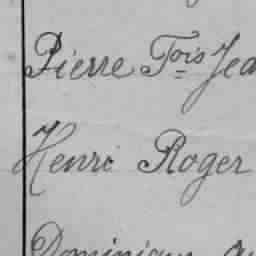 Pierre Fois Jea
Henri Roger
Dominique